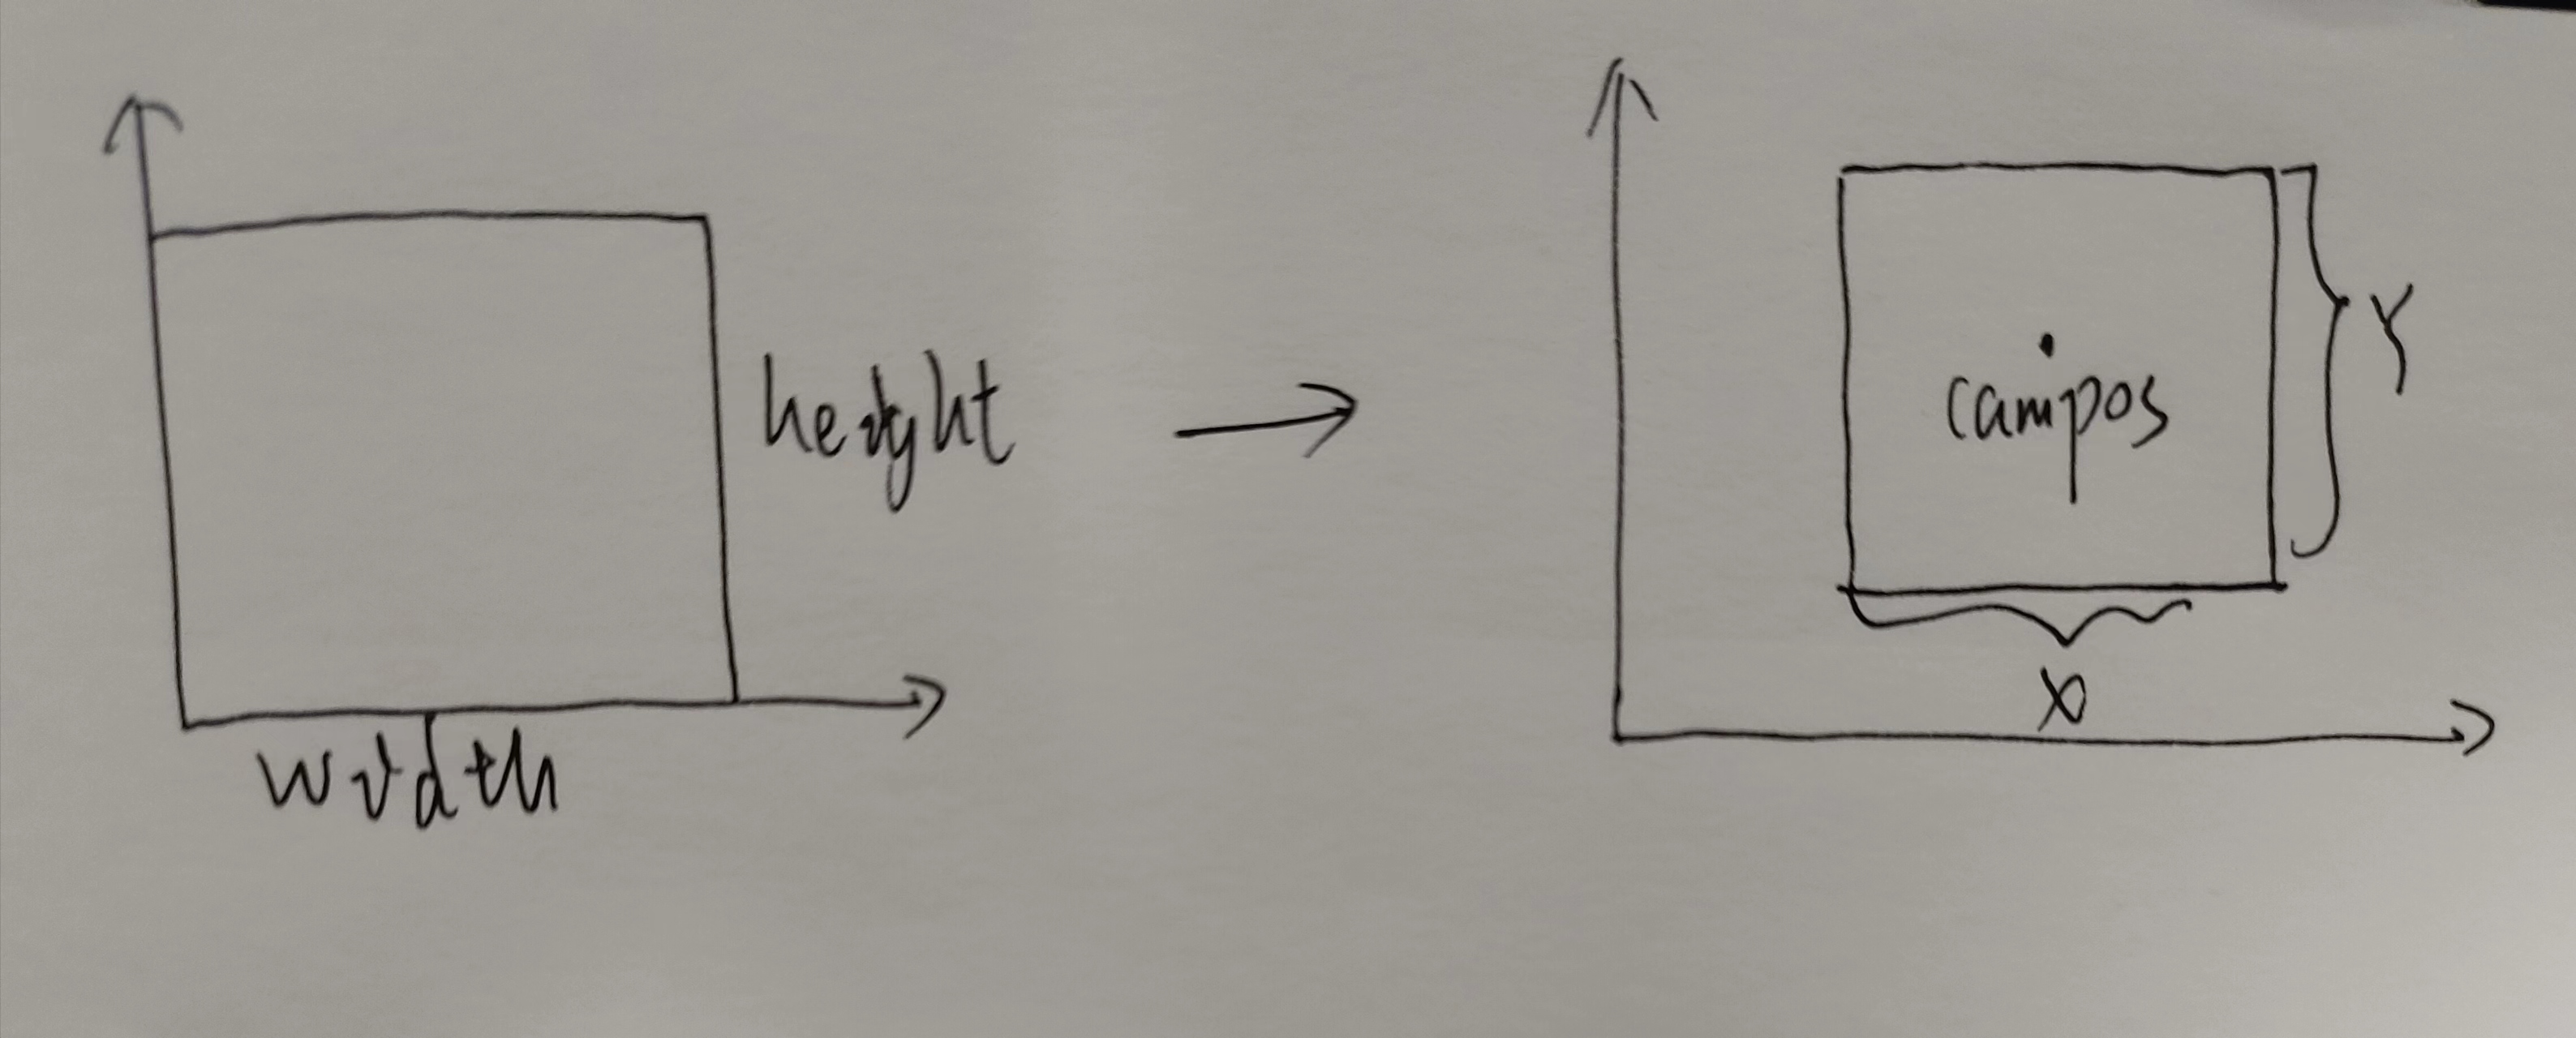 height
width
campos
Y
X